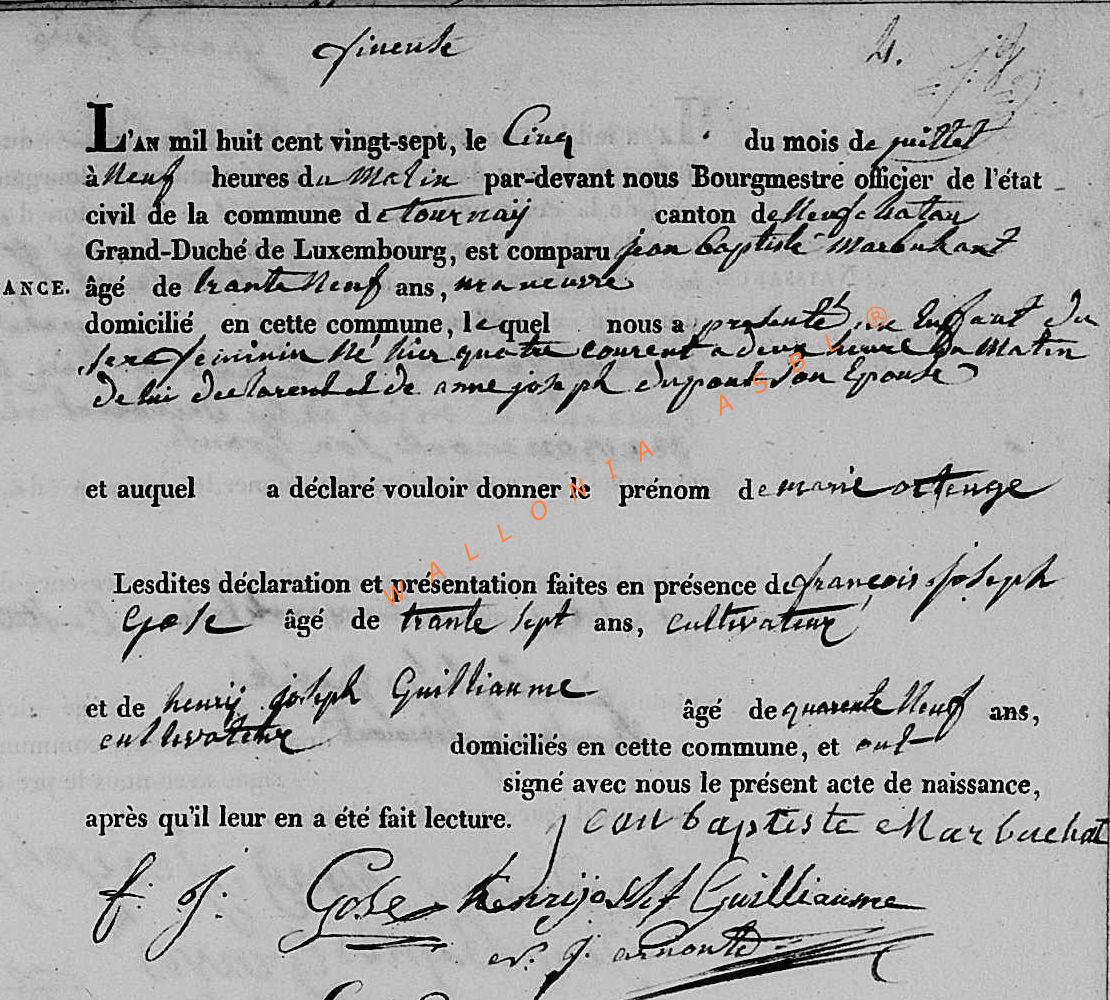 4.
L'AN mil huit cent vingt-sept, le Cinq du mois de juillet
à Neuf heures du Matin par-devant nous Bourgmestre officier de l'état
civil de la commune de tournaÿ canton de Neufchatau
Grand-Duché de Luxembourg, est comparu jean baptiste Marbuhant
ANCE. âgé de trante Neuf ans, maneuvre
domicilié en cette commune, lequel nous a présenté un Enffant du
sexe feminin Né hier quatre courent a deux heure du Matin
de lui declarent et de anne joseph dupont son Epouse
et auquel a déclaré vouloir donner le prénom de marie ortenge
Lesdites déclaration et présentation faites en présence de françois joseph
Gose âgé de trante sept ans, cultivateur
et de henrij joseph Guilliaume âgé de quarente Neuf ans,
cultivateur domiciliés en cette commune, et ont
signé avec nous le présent acte de naissance,
après qu'il leur en a été fait lecture. jean baptiste Marbuchat
f: J: Gose henrijosef Guilliaume
J. arnould
WALLONIA ASBL ®